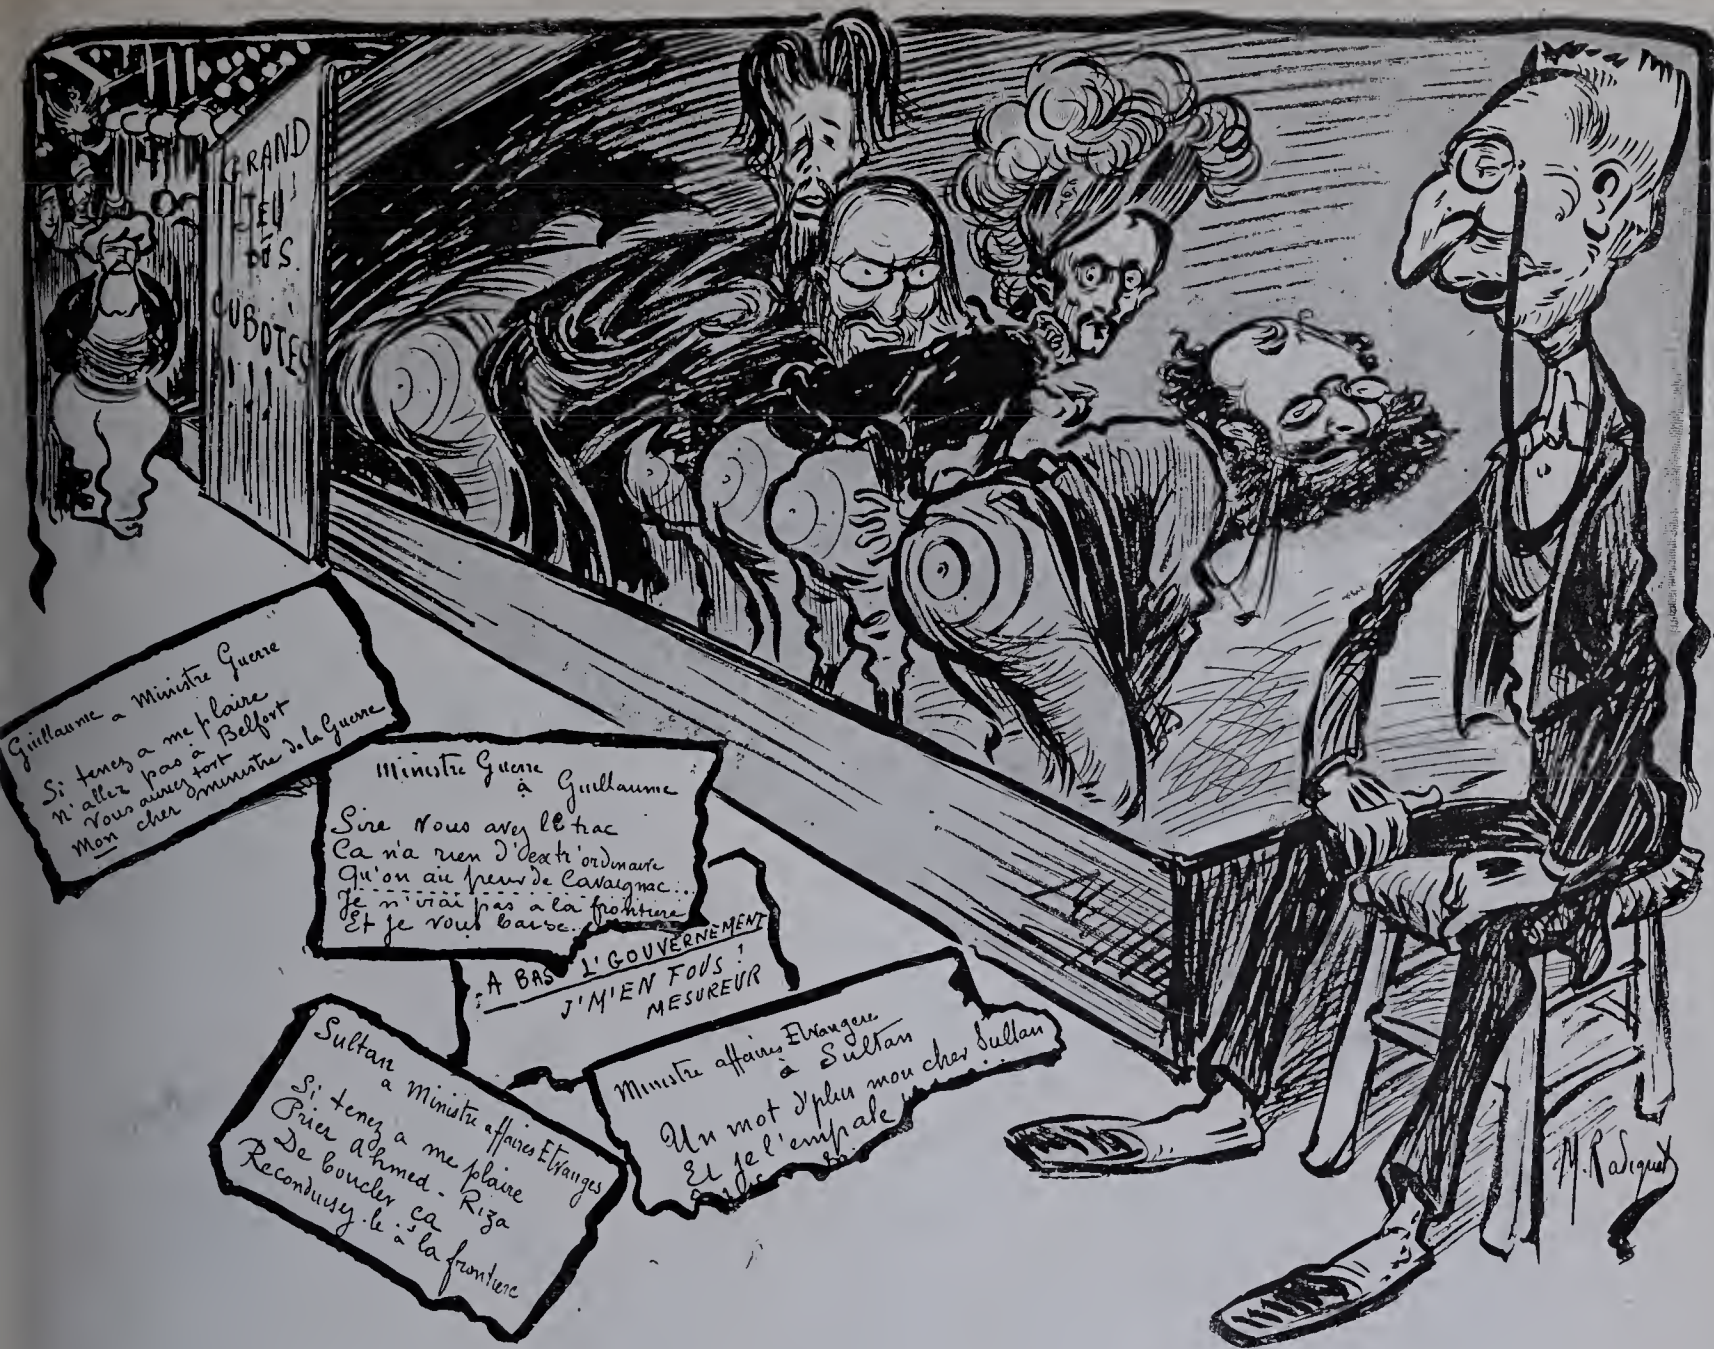 GRAND
JEU
DES
CUBOTES
! ! ! !
Guillaume a Ministre Guerre
Si tenez a me plaire
N'allez pas à Belfort
Vous auriez tort
Mon cher ministre de la Guerre
Ministre Guerre
à Guillaume
Sire Vous avez le trac
Ca n'a rien d'extr'ordinaire
Qu'on ait peur de Cavaignac...
Je n'irai pas a la frontiere
Et je vous baise...
A BAS L'GOUVERNEMENT
J'M'EN FOUS !
MESUREUR
Sultan
a Ministre affaires Etranges
Si tenez a me plaire
Prier Ahmed-Riza
De boucler ça
Reconduisez-le à la frontiere
Ministre affaires Etrangere
à Sultan
Un mot d'plus mon cher Sultan
Et je l'empale
M. Radiguet